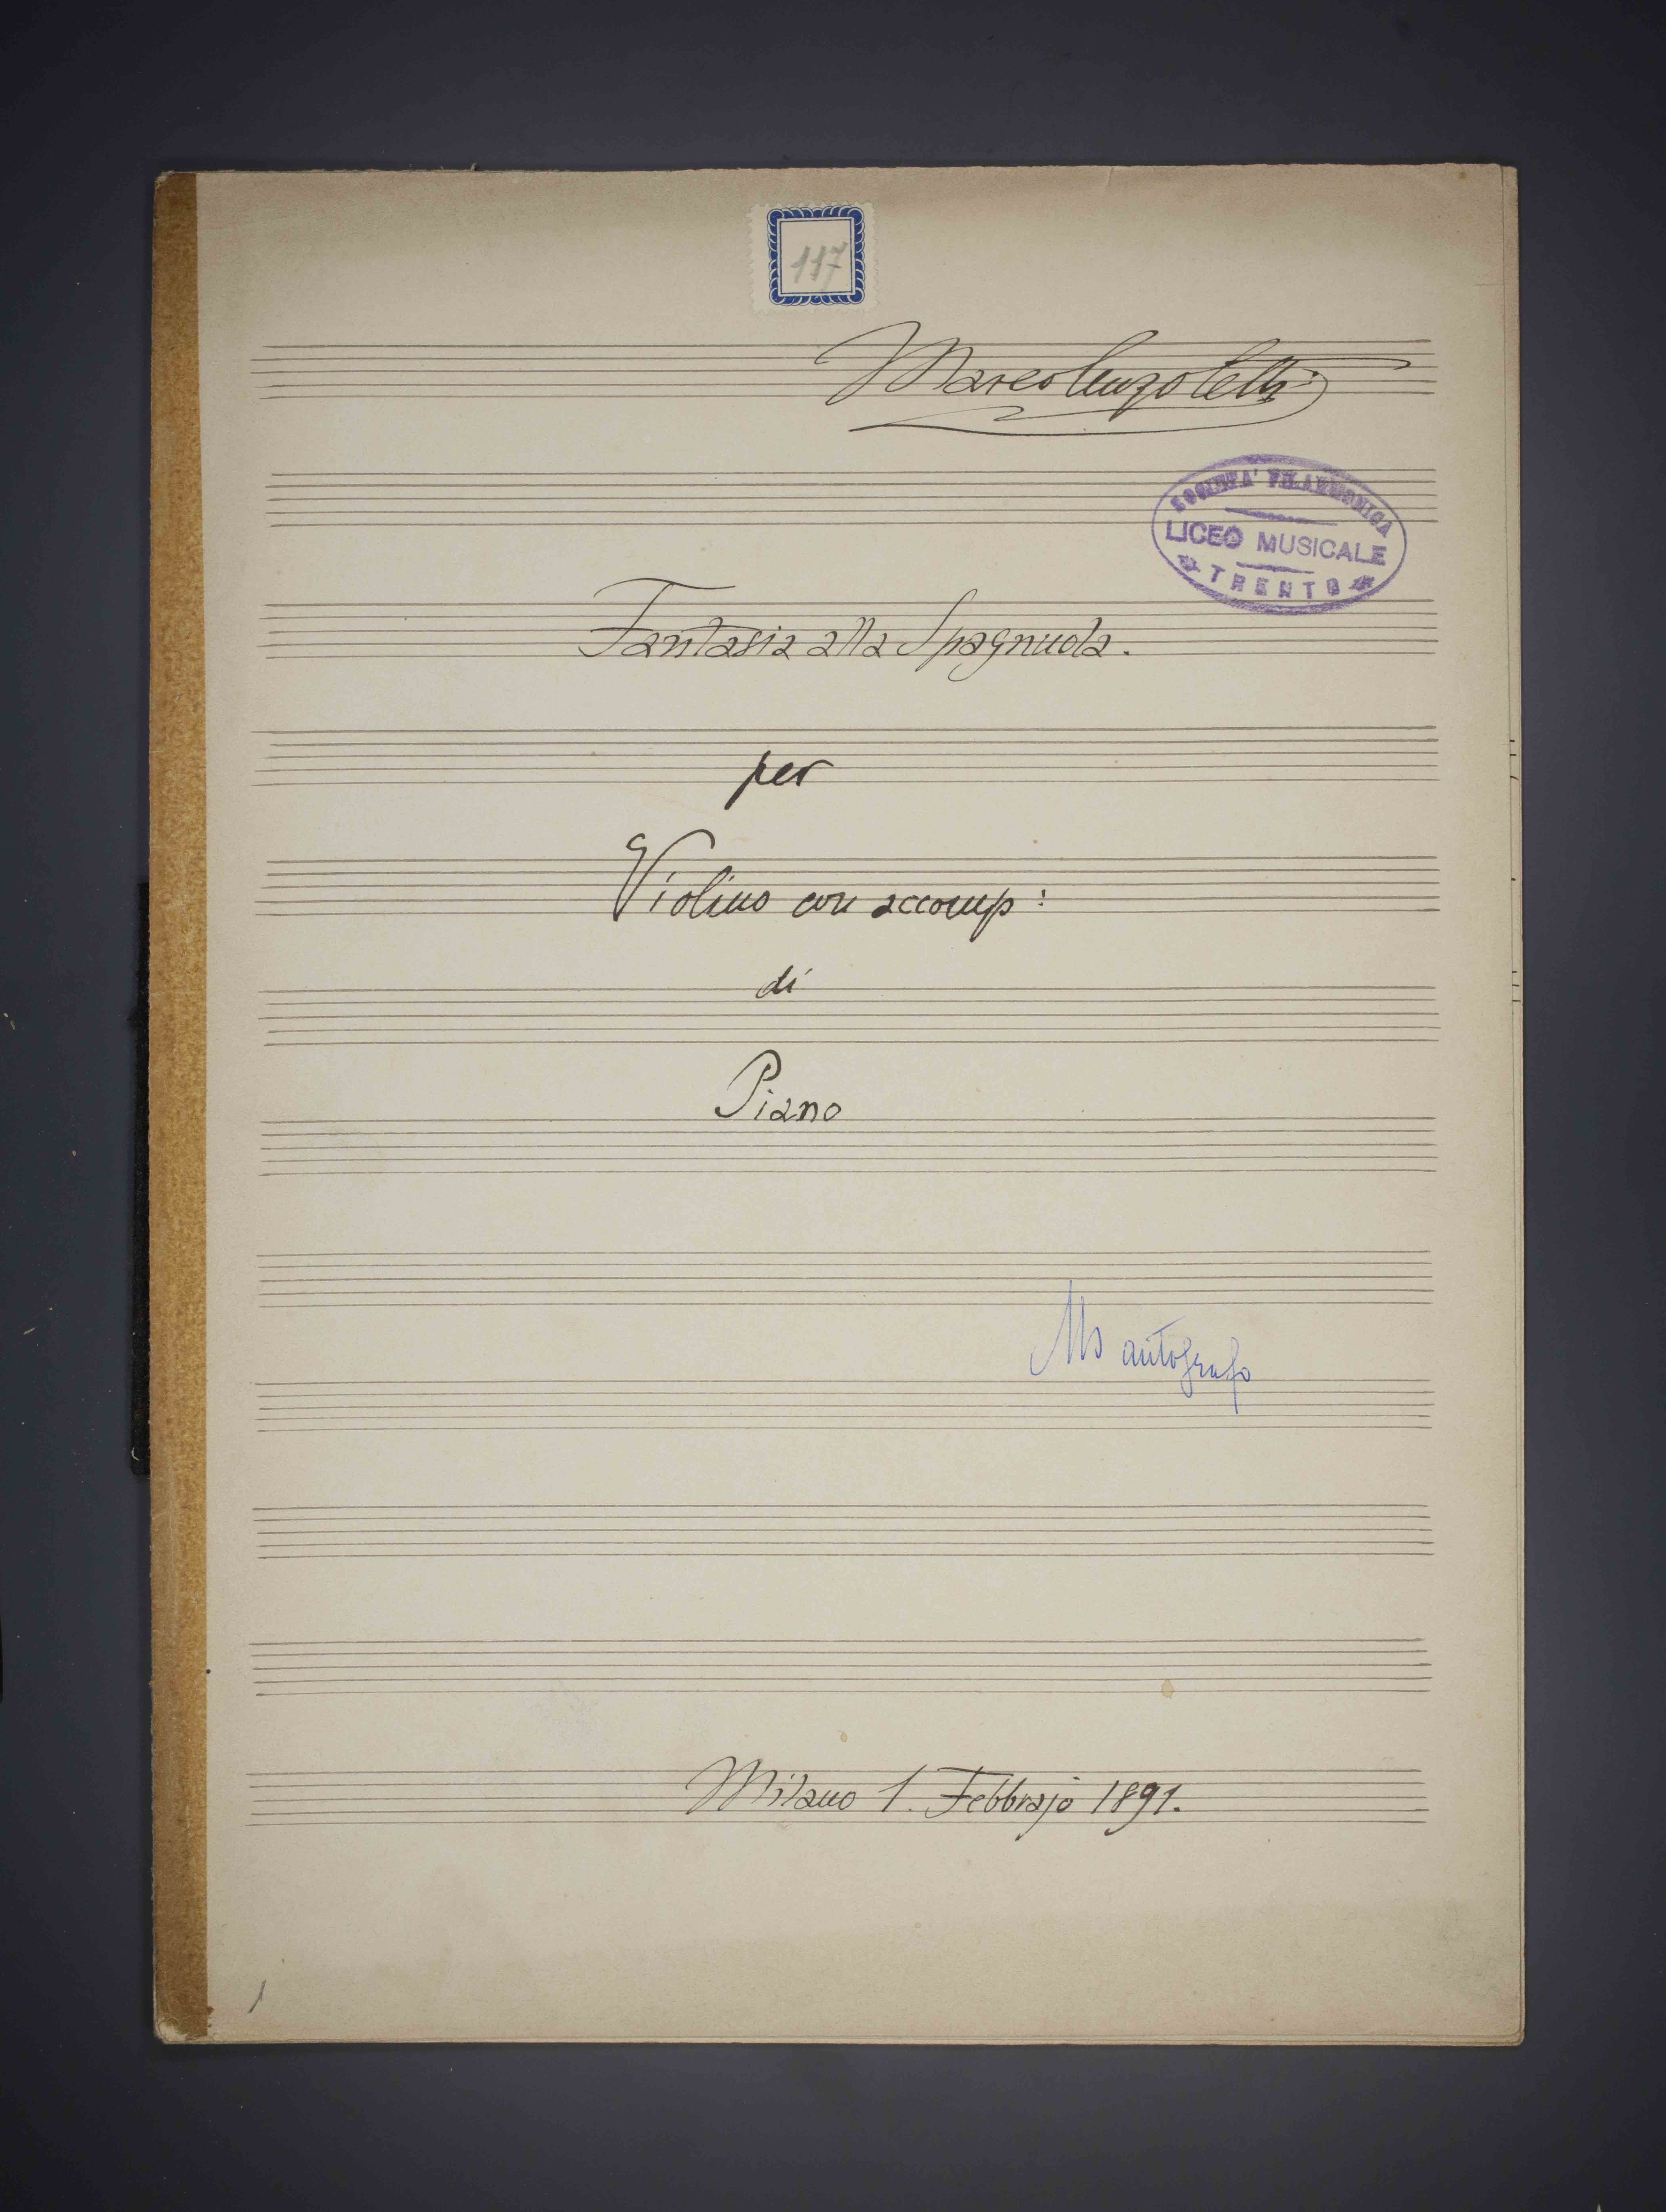 117
Marco Anzoletti
SOCIETA' FILARMONICA
LICEO MUSICALE
TRENTO
Fantasia alla Spagnuola.
per
Violino con accomp:
di
Piano
Ms autografo
Milano 1. Febbrajo 1891.
1